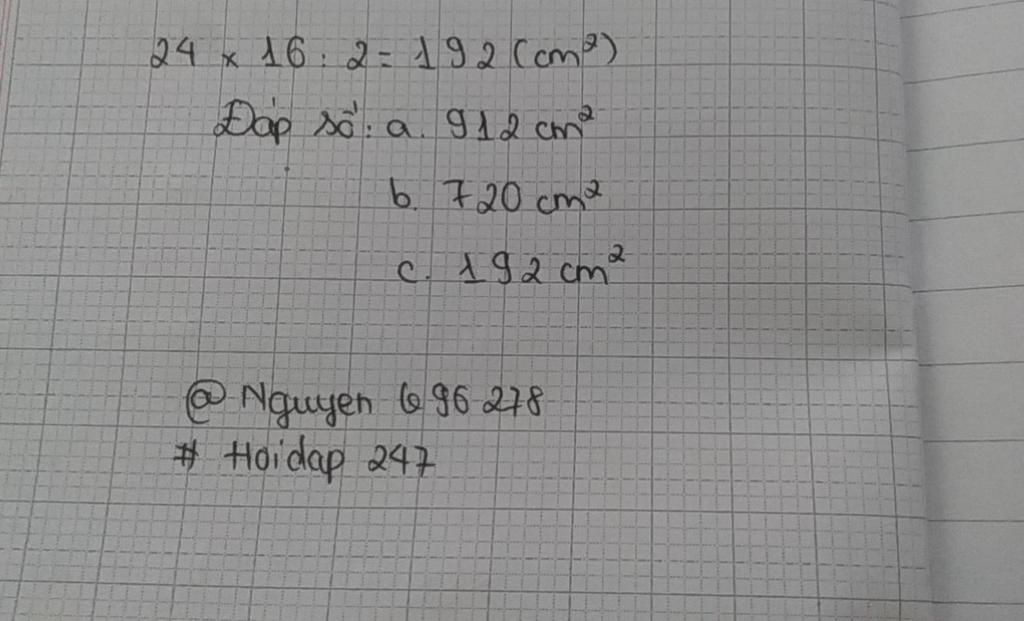 24 x 16 : 2 = 192 (cm²)
Đáp số: a. 912 cm²
b. 720 cm²
c. 192 cm²
@ Nguyen 696 278
# Hoidap 247